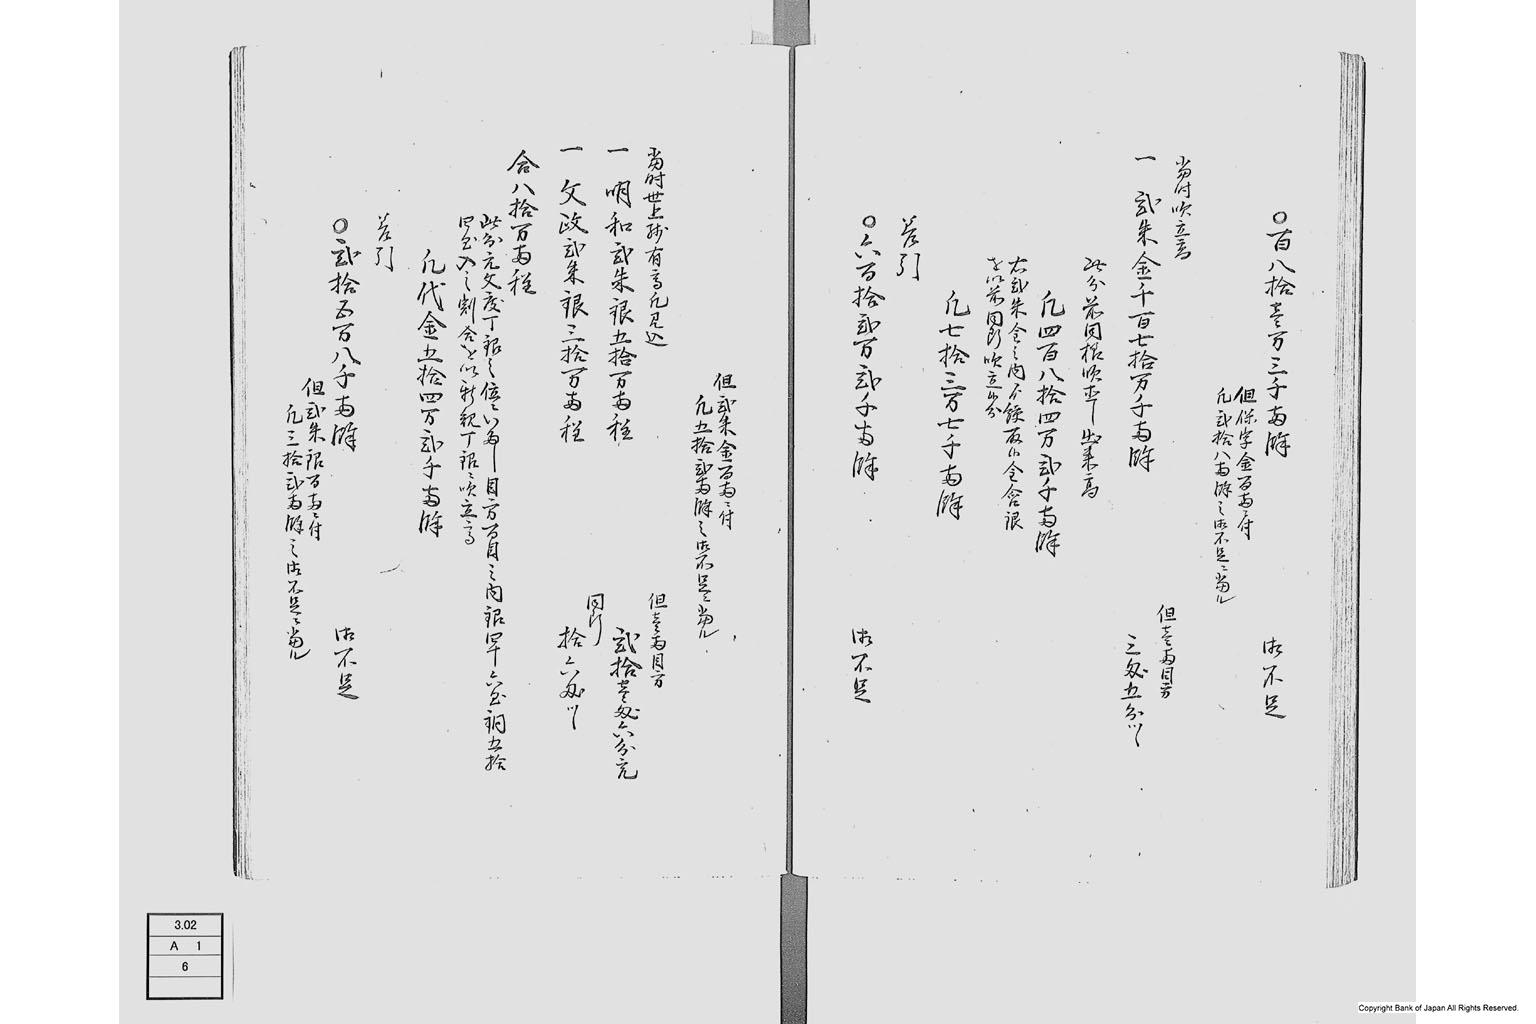 〇百八拾壱万三千両余
御不足
但保字金百両ニ付
凡弐拾八両余之御不足ニ当ル
当時吹立高
一 弐朱金千百七拾万千両余
但壱両目方
三匁五分ツヽ
此分前同様吹直シ出来高
凡四百八拾四万弐千両余
右弐朱金之内
を以前同断吹立候分
凡七拾三万七千両余
差引
〇六百拾弐万弐千両余
御不足
但弐朱金百両ニ付
凡五拾弐両余之御不足ニ当ル
当時世上残有高凡見込
一 明和弐朱銀五拾万両程
但壱両目方
弐拾壱匁六分充
一 文政弐朱銀三拾万両程
同断
拾六匁ツヽ
合八拾万両程
此分元文度丁銀之位ニ
目方百目之内銀四十六匁銅五拾
四匁入之割合を以新規丁銀ニ吹立高
凡代金五拾四万弐千両余
差引
〇弐拾五万八千両余
御不足
但弐朱銀百両ニ付
凡三拾弐両余之御不足ニ当ル
3.02
A 1
6
Copyright Bank of Japan All Rights Reserved.